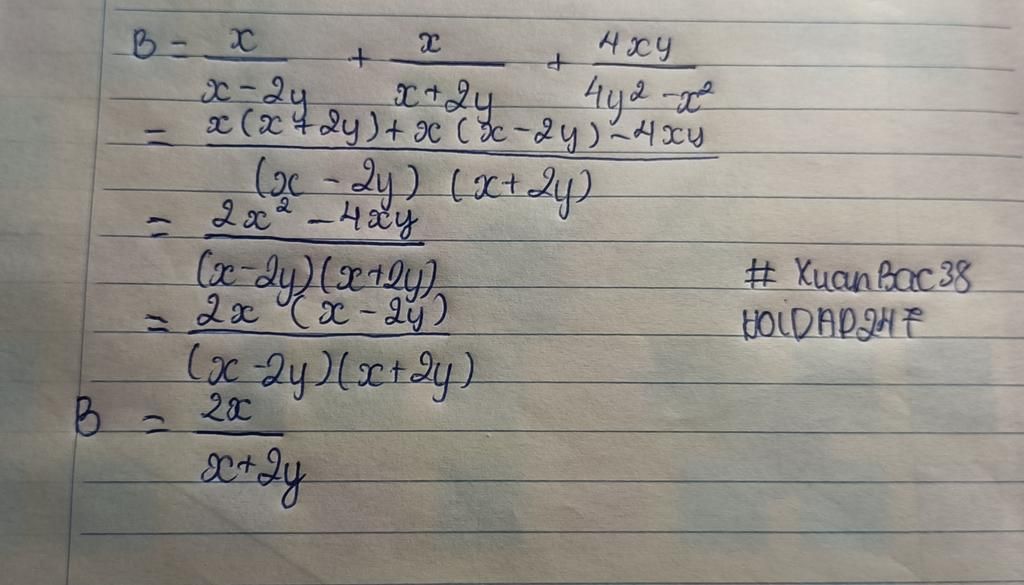 B = x/(x - 2y) + x/(x + 2y) + 4xy/(4y² - x²)
= (x(x + 2y) + x(x - 2y) - 4xy)/((x - 2y)(x + 2y))
= (2x² - 4xy)/((x - 2y)(x + 2y))
= (2x(x - 2y))/((x - 2y)(x + 2y))
B = 2x/(x + 2y)
# XuanBac38
HOIDAP247